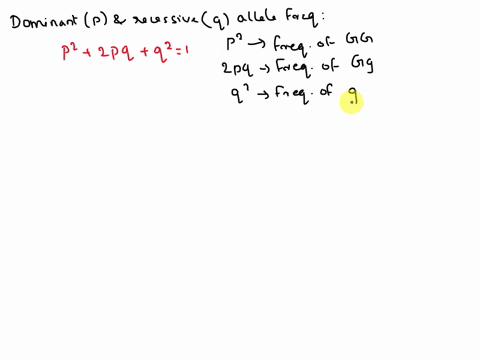 Dominant (p) & recessive (q) allele freq:
p² + 2pq + q² = 1
p² → freq. of GG
2pq → freq. of Gg
q² → freq. of g